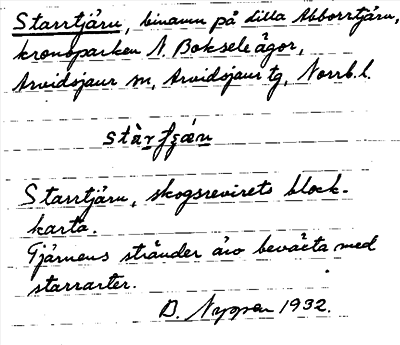 Starrtjärn, binamn på Lilla Abborrtjärn,
kronoparken N. Boksele ägor,
Arvidsjaur sn, Arvidsjaur tg, Norrb. l.
Starrtjärn, skogsrevirets block-
karta.
Tjärnens stränder äro beväxta med
starrarter.
B. 1932.